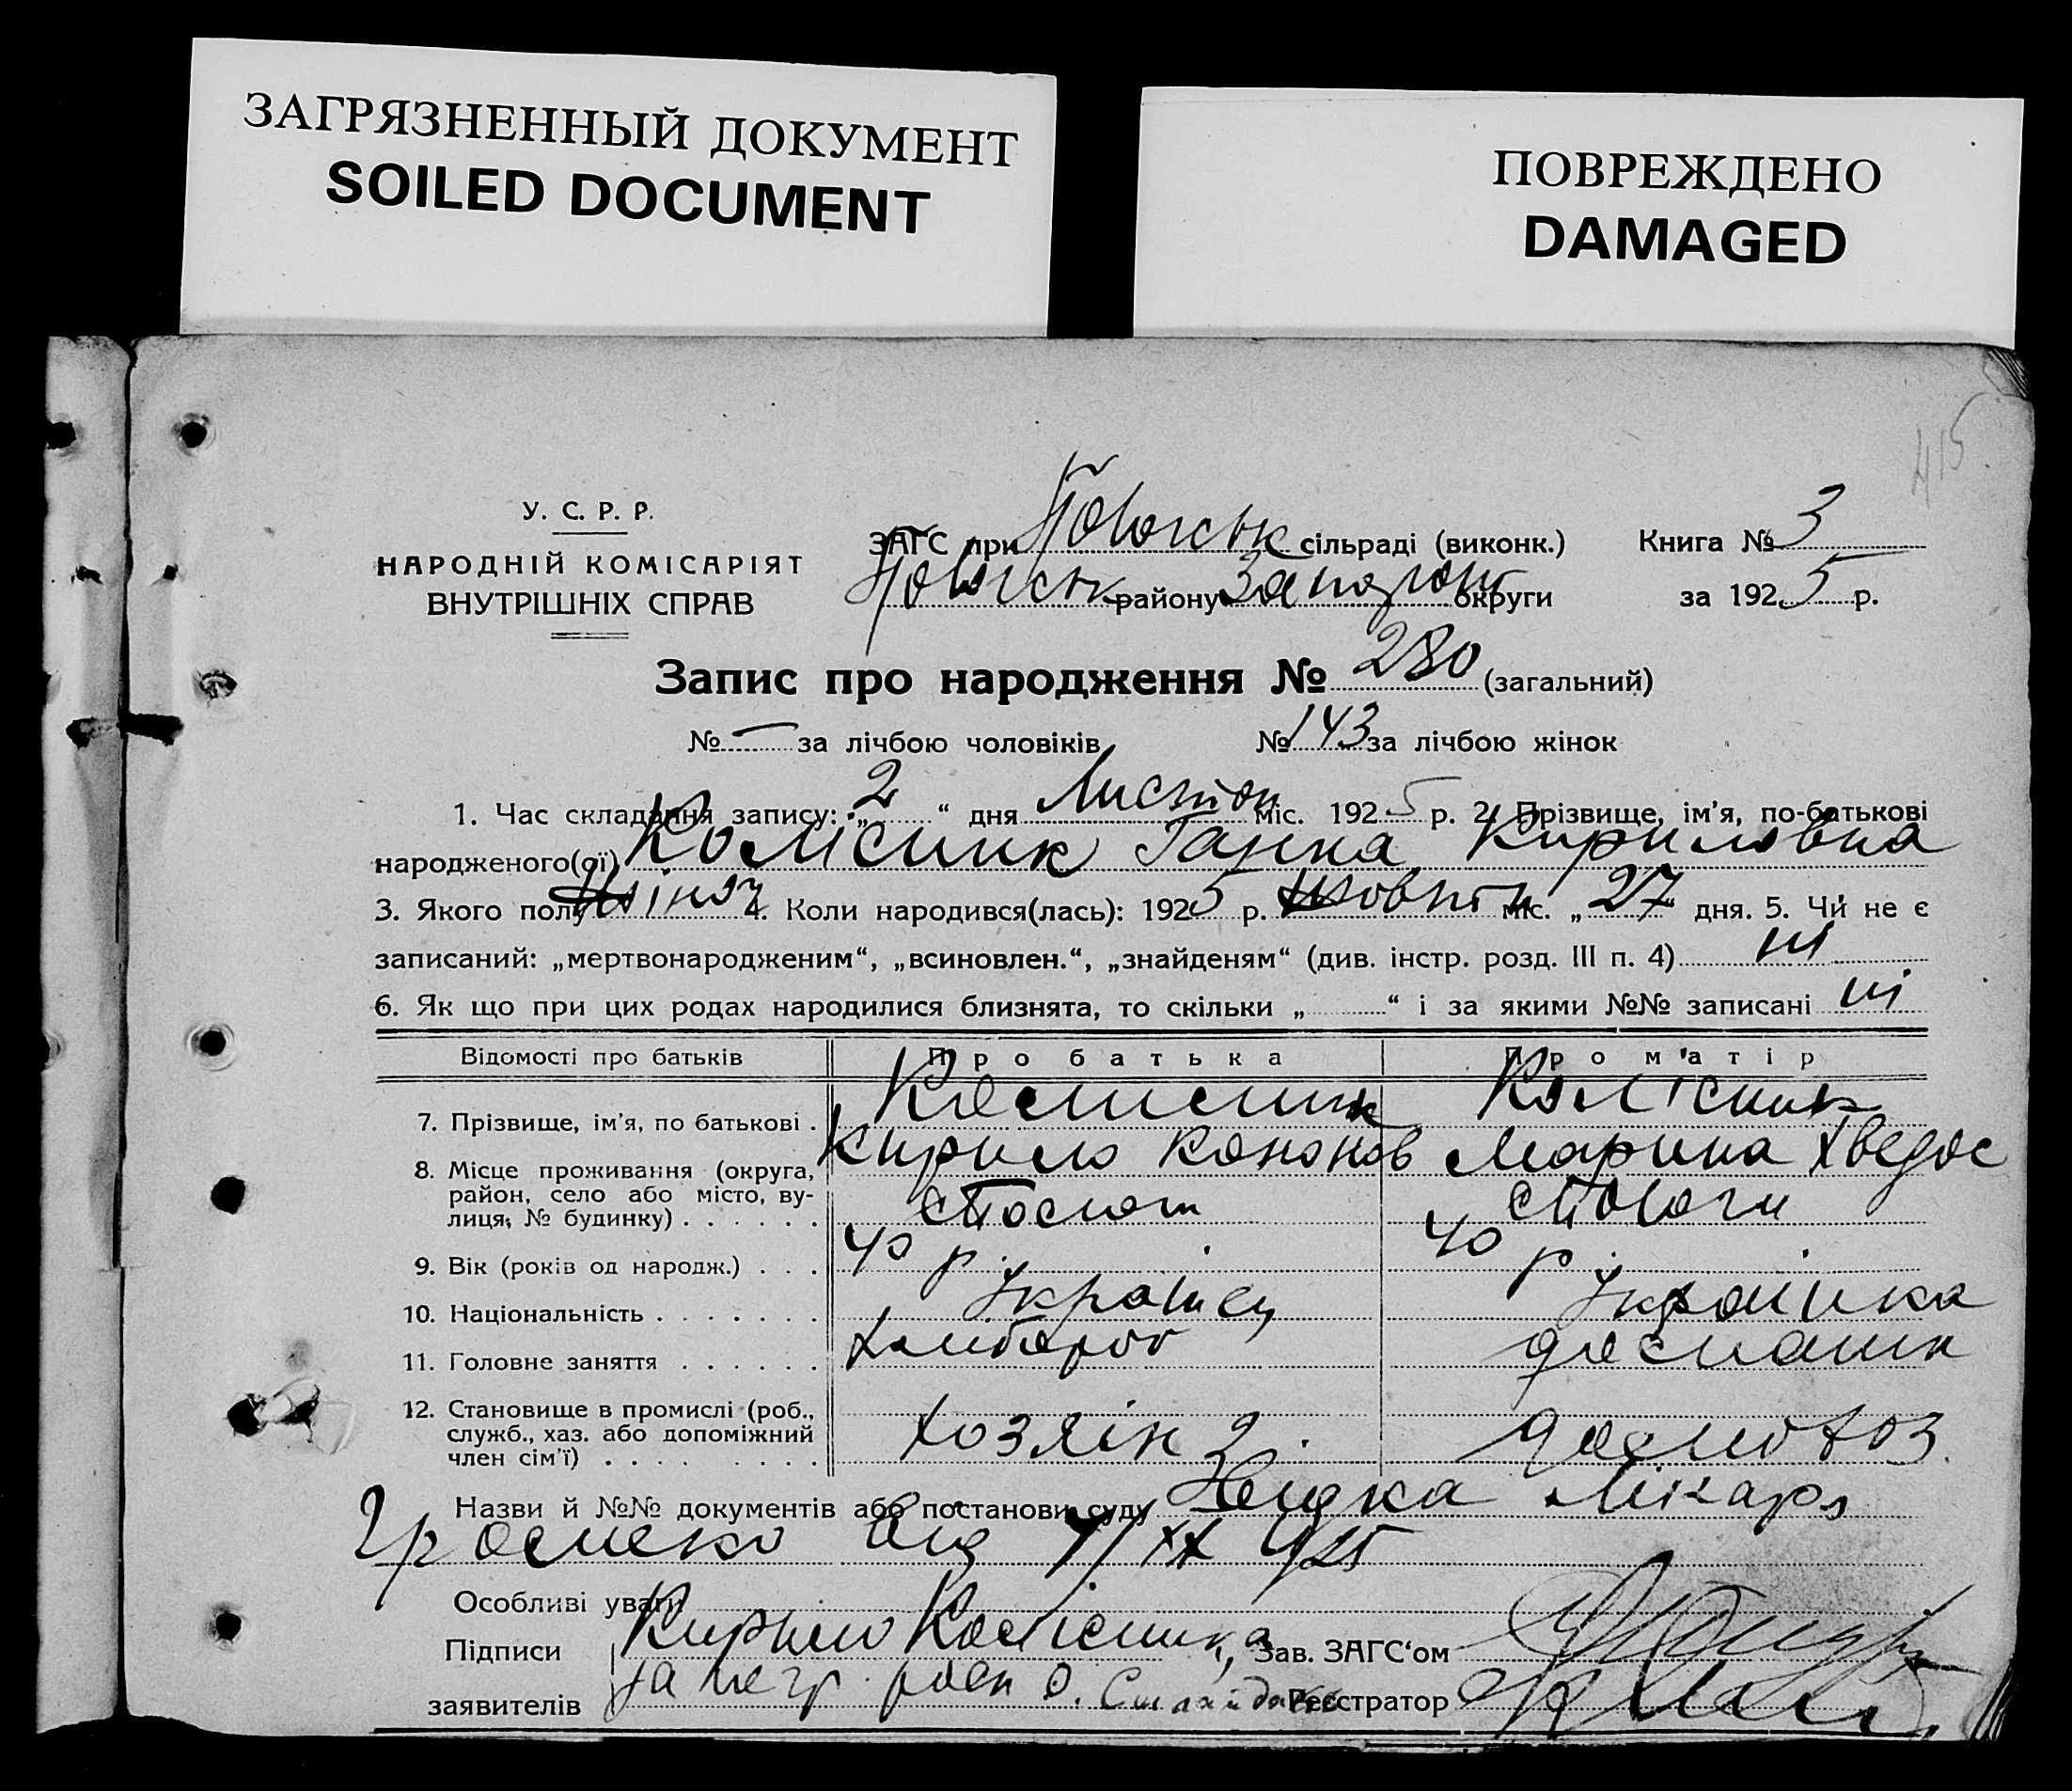 ЗАГРЯЗНЕННЫЙ ДОКУМЕНТ
SOILED DOCUMENT
ПОВРЕЖДЕНО
DAMAGED
415
У. С. Р. Р.
НАРОДНІЙ КОМІСАРІЯТ
ВНУТРІШНІХ СПРАВ
ЗАГС при Пологськ сільраді (виконк.) Книга № 3
Пологськ району Запоріж округи за 1925 р.
Запис про народження № 280 (загальний)
№ — за лічбою чоловіків № 143 за лічбою жінок
1. Час складання запису: „2“ дня Листоп міс. 1925 р. 2. Прізвище, ім'я, по-батькові
народженого(ої) Колісник Ганна Кириловна
3. Якого полу жіноч 4. Коли народився(лась): 1925 р. Жовтн міс. „27“ дня. 5. Чи не є
записаний: „мертвонародженим“, „всиновлен.“, „знайденям“ (див. інстр. розд. III п. 4) ні
6. Як що при цих родах народилися близнята, то скільки „ “ і за якими №№ записані ні
Відомості про батьків Про батька Про матір
7. Прізвище, ім'я, по батькові . Колісник Колісник
Кирило Кононов Марина Хведос
8. Місце проживання (округа,
район, село або місто, ву-
лиця, № будинку) . . . . . . ст Пологи ст Пологи
9. Вік (років од народж.) . . . 40 р. 40 р.
10. Національність . . . . . . . Українец Українка
11. Головне заняття . . . . . . Хлібороб
12. Становище в промислі (роб.,
служб., хаз. або допоміжний
член сім'ї) . . . . . . . . Хозяїн
Назви й №№ документів або постанови суду Лікаря
від 1925
Особливі уваги
Підписи Кирило Колісника, Зав. ЗАГС'ом
заявителів за негр. Реєстратор